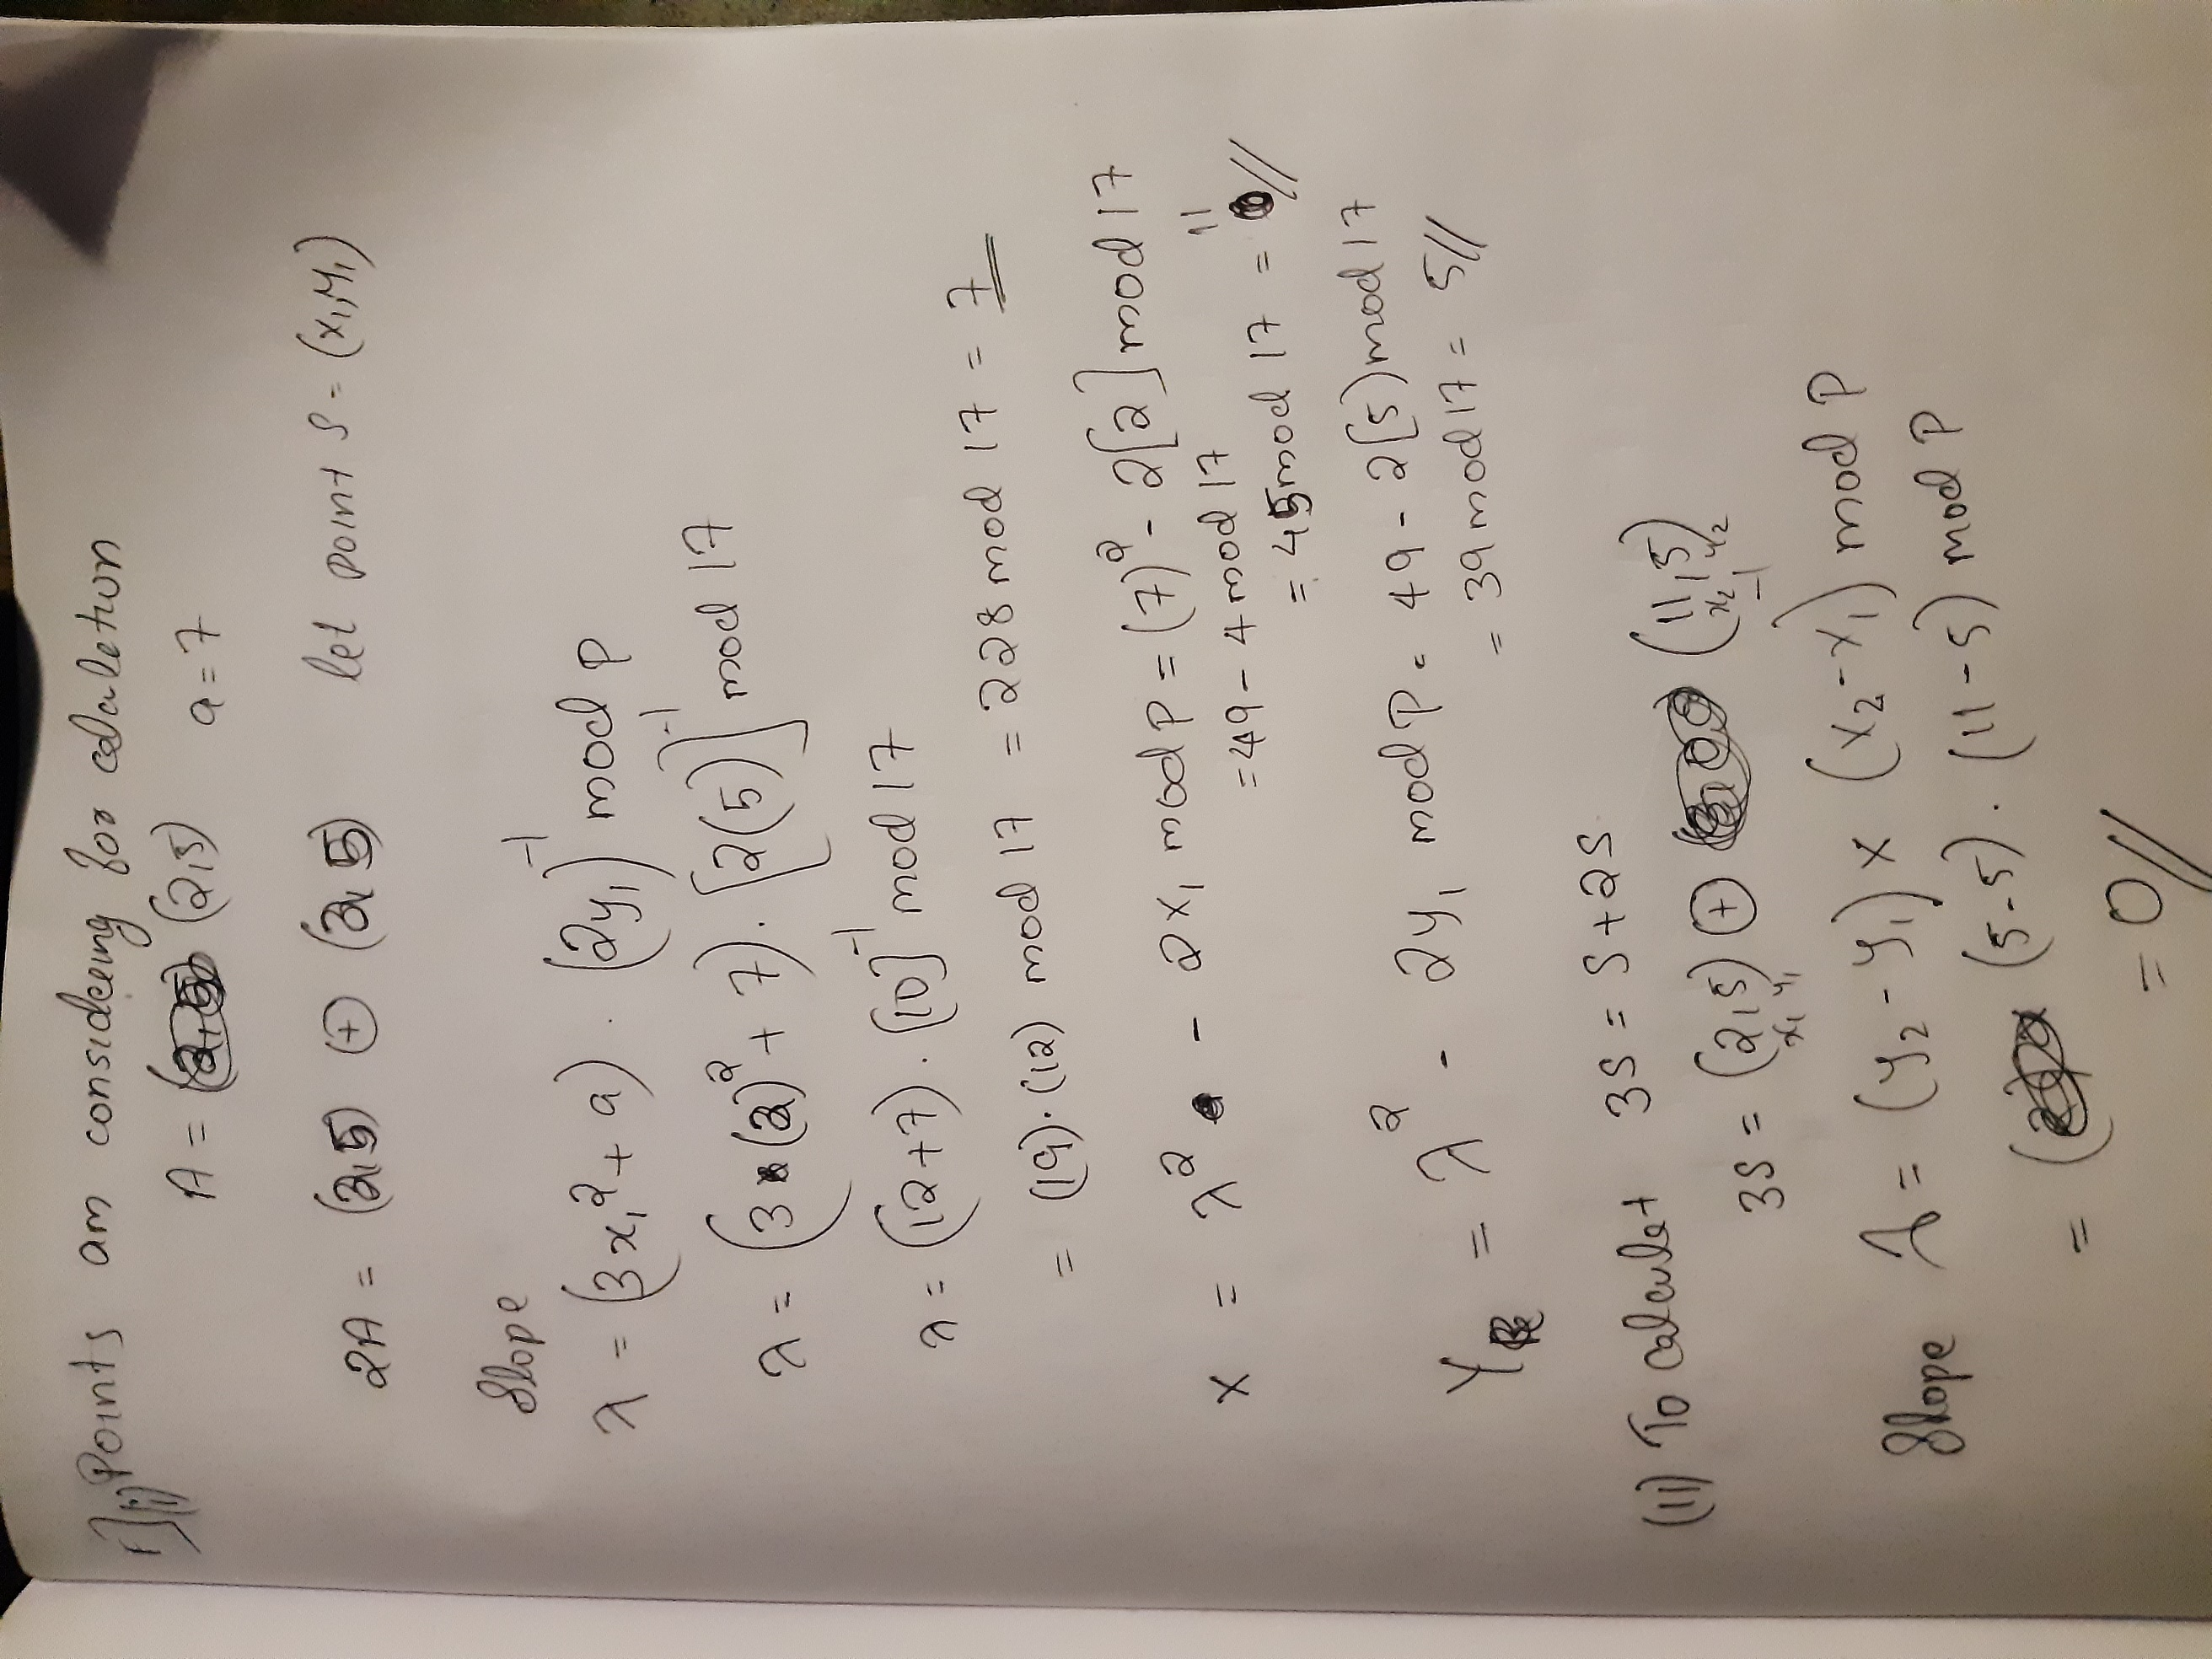 1] i) Points am considering for calculation
A = (2,5) a = 7
2A = (2,5) ⊕ (2,5) let point S = (x₁,y₁)
Slope
λ = (3x₁² + a) . (2y₁)⁻¹ mod P
λ = (3 (2)² + 7) . [2(5)]⁻¹ mod 17
λ = (12+7) . [10]⁻¹ mod 17
= (19).(12) mod 17 = 228 mod 17 = 7
x = λ² - 2x₁ mod P = (7)² - 2[2] mod 17
= 49 - 4 mod 17
= 45 mod 17 = 11//
Y = λ² - 2y₁ mod P = 49 - 2(5) mod 17
= 39 mod 17 = 5//
(ii) To Calculet 3S = S + 2S
3S = (2,5) ⊕ (11,5)
x₁ y₁ x₂ y₂
Slope λ = (y₂ - y₁) x (x₂ - x₁)⁻¹ mod P
= (5-5) . (11-5) mod P
= 0//